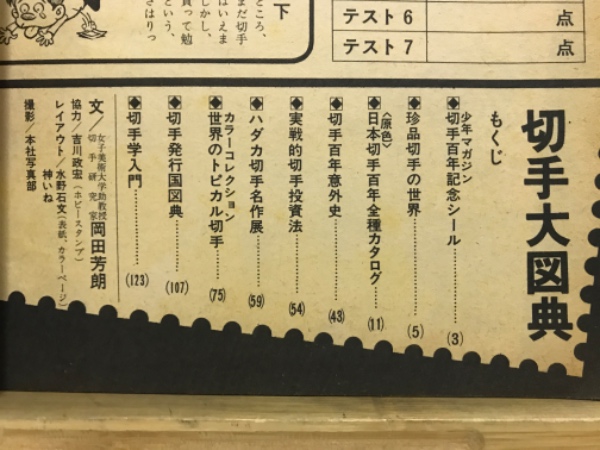 下
ところ、
まだ切手
はいえま
しかし、
買って勉
という、
さはりっ
テスト6 点
テスト7 点
切手大図典
もくじ
少年マガジン
◆切手百年記念シール (3)
◆珍品切手の世界 (5)
〈原色〉
◆日本切手百年全種カタログ (11)
◆切手百年意外史 (43)
◆実戦的切手投資法 (54)
◆ハダカ切手名作展 (59)
カラーコレクション
◆世界のトピカル切手 (75)
◆切手発行国図典 (107)
◆切手学入門 (123)
文/女子美術大学助教授 切手研究家 岡田芳朗
協力/吉川政宏(ホビースタンプ)
レイアウト/水野石文(表紙、カラーページ)
神いね
撮影/本社写真部